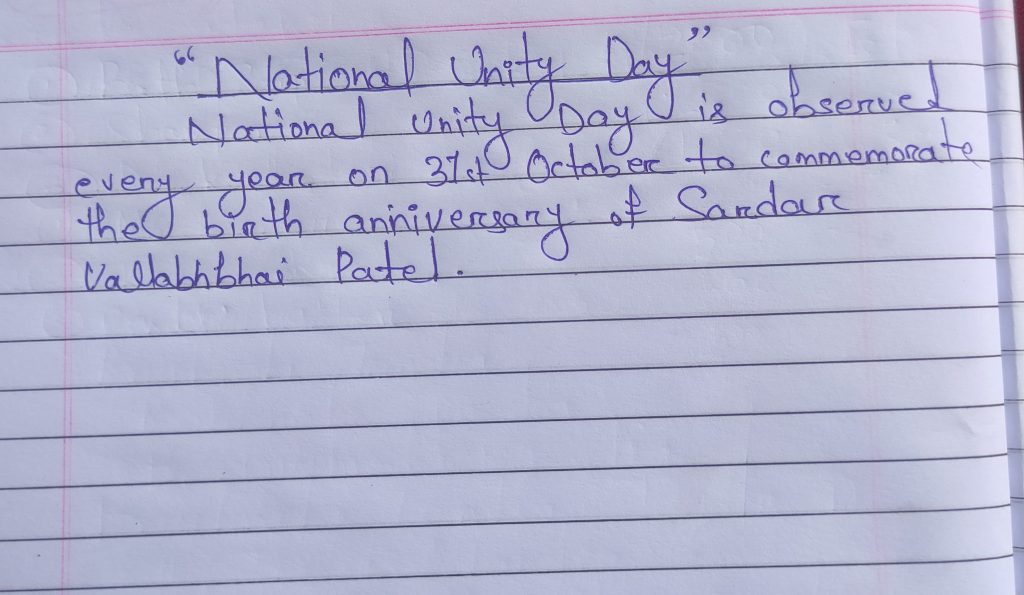 “National Unity Day”
National Unity Day is observed
every year on 31st October to commemorate
the birth anniversary of Sardar
Vallabhbhai Patel.